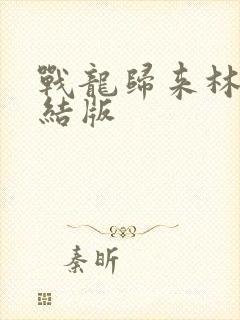 戰龍歸來林
結版
秦昕